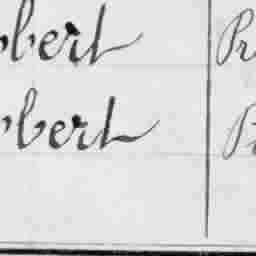 bert Pr
bert P